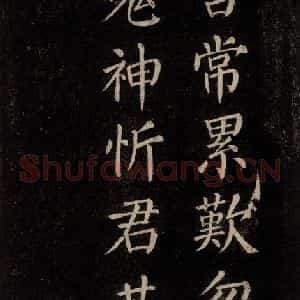 常累歎忽
鬼神忻君
Shufawang.CN